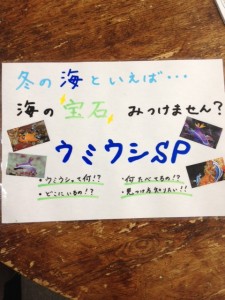 冬の海といえば・・・
海の宝石 みつけません?
ウミウシSP
・ウミウシって何!?
・何たべてるの!?
・どこにいるの!?
・見つけ方知りたい!!